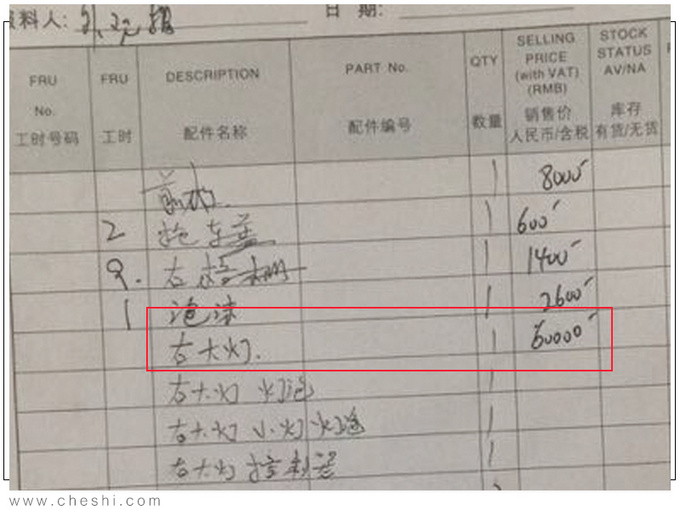 料人: 日 期:
FRU No. 工时号码
FRU 工时
DESCRIPTION 配件名称
PART No. 配件编号
QTY 数量
SELLING PRICE (with VAT) (RMB) 销售价 人民币/含税
STOCK STATUS AV/NA 库存 有货/无货
1 8000
2 拖车盖 1 600
9. 右 1 1400
1 泡沫 1 2600
右大灯. 1 60000
右大灯 灯泡 1
右大灯 小灯灯泡 1
右大灯 控制器 1
www.cheshi.com